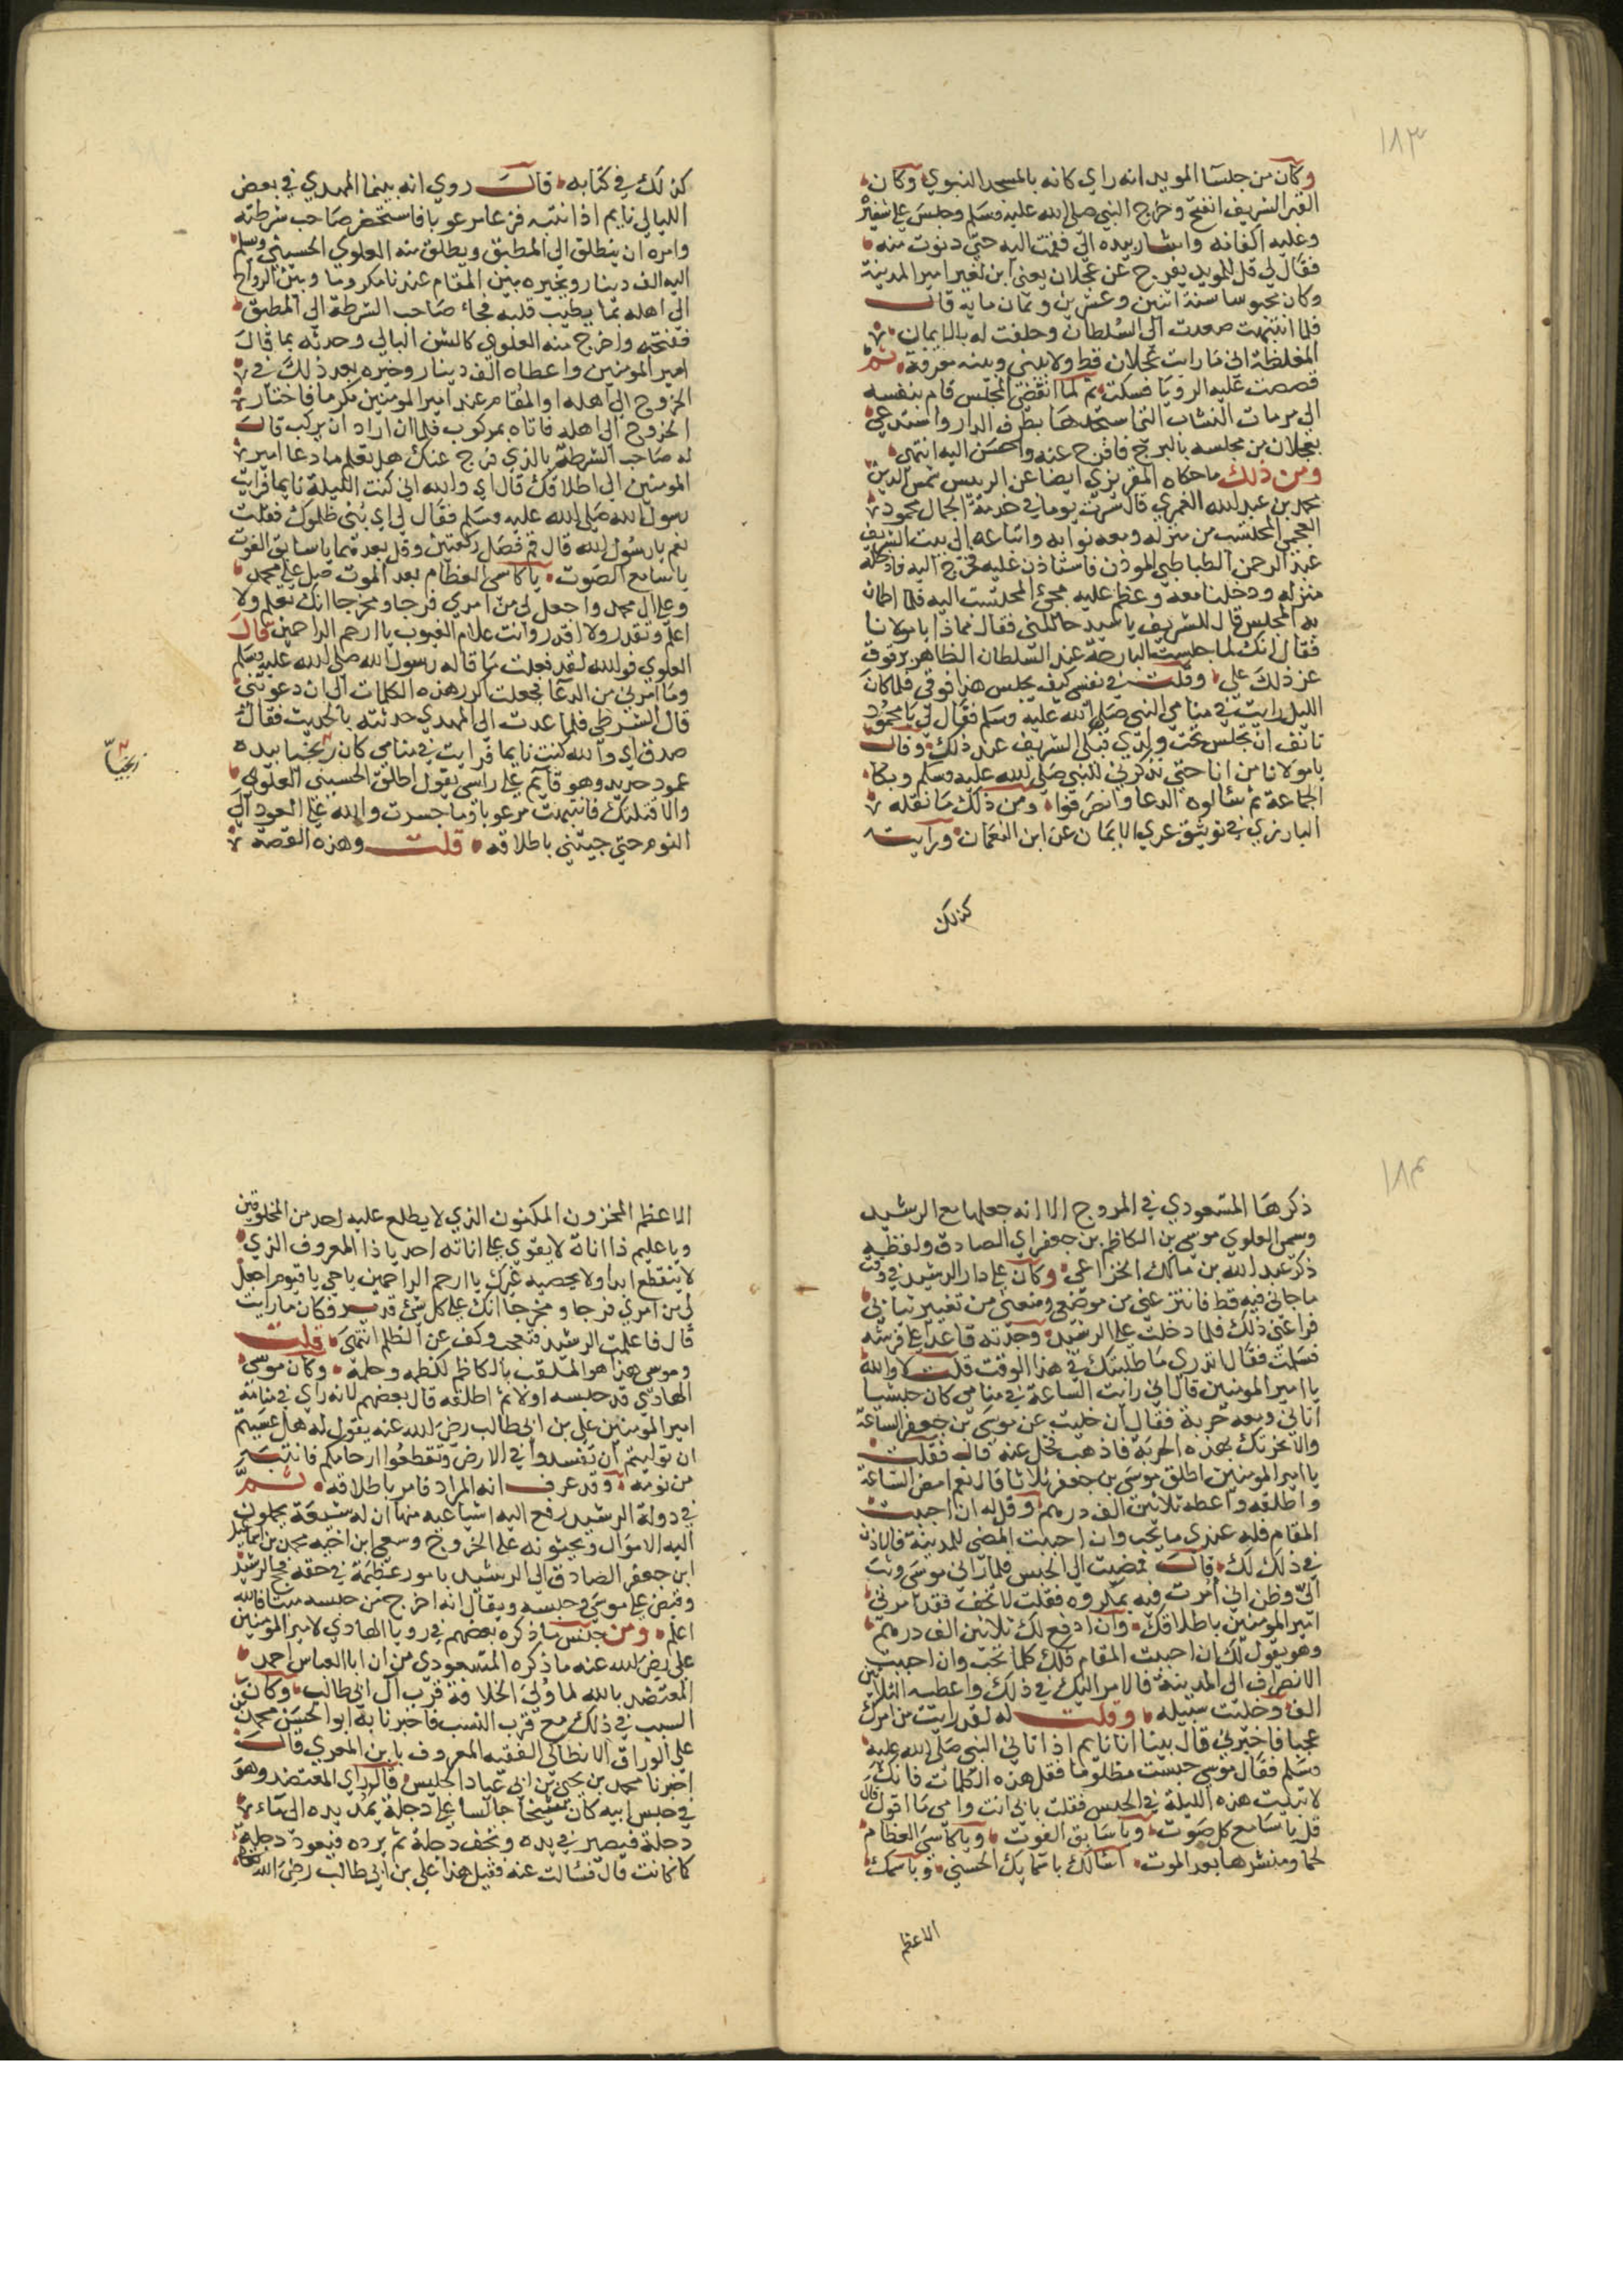 ١٨٣
وكان من جلسا المويد انه راي كانه بالمسجد النبوي وكان
القبر الشريف انفتح وخرج النبي صلى الله عليه وسلم وجلس على شفيره
وعليه اكفانه واشار بيده الي فقمت اليه حتى دنوت منه
فقال لي قل للمويد يفرج عن عجلان يعني ابن نعير امير المدينة
وكان محبوسا سنة اثنين وعشرين وثمان ماية قال
فلما انتبهت صعدت الى السلطان وحلفت له بالايمان
المغلظة اني ما رايت عجلان قط ولا بيني وبينه معرفة ثم
قصصت عليه الرويا فسكت ثم لما انقضى المجلس قام بنفسه
الى مرمات النشاب التي استجدها بطرف الدار واستدعى
بعجلان من مجلسه بالبرج فافرج عنه واحسن اليه انتهى
ومن ذلك ما حكاه المقريزي ايضا عن الريس شمس الدين
محمد بن عبد الله العمري قال سرت يوما في خدمة الجمال محمود
العجمي المحتسب من منزله ومعه نوابه واتباعه الى بيت الشريف
عبد الرحمن الطباطبي الموذن فاستاذن عليه فخرج اليه فادخله
منزله ودخلنا معه وعظم عليه مجيء المحتسب اليه فلما اطمان
به المجلس قال للشريف يا سيد حاللني فقال مماذا يا مولانا
فقال انك لما جلست البارحة عند السلطان الظاهر برقوق
عز ذلك علي وقلت في نفسي كيف يجلس هذا فوقي فلما كان
الليل رايت في منامي النبي صلى الله عليه وسلم فقال لي يا محمود
تانف ان تجلس تحت ولدي فبكى الشريف عند ذلك وقال
يا مولانا من انا حتى يذكرني النبي صلى الله عليه وسلم وبكا
الجماعة ثم سالوه الدعا وانصرفوا ومن ذلك ما نقله
البارزي في توثيق عري الايمان عن ابن النعمان ورايت
كذلك
كذلك في كتابه قال روي انه بينما المهدي في بعض
الليالي نايم اذ انتبه فزعا مرعوبا فاستحضر صاحب شرطته
وامره ان ينطلق الى المطبق ويطلق منه العلوي الحسيني وسلم
اليه الف دينار ويخيره بين المقام عندنا مكروما وبين الرواح
الى اهله بما يطيب قلبه فجاء صاحب الشرطة الى المطبق
ففتحه واخرج منه العلوي كالشن البالي وحدثه بما قال
امير المومنين واعطاه الف دينار وخيره بعد ذلك في
الخروج الى اهله او المقام عند امير المومنين مكرما فاختار
الخروج الى اهله فاتاه بمركوب فلما ان اراد ان يركب قال
له صاحب الشرطة بالذي فرج عنك هل تعلم ما دعا امير
المومنين الى اطلاقك قال اي والله اني كنت الليلة نايما فرايت
رسول الله صلى الله عليه وسلم فقال لي اي بني ظلموك فقلت
نعم يا رسول الله قال قم فصل ركعتين وقل بعدهما يا سابق الفوت
يا سامع الصوت يا كاسي العظام بعد الموت صل على محمد
وعلى ال محمد واجعل لي من امري فرجا ومخرجا انك تعلم ولا
اعلم وتقدر ولا اقدر وانت علام الغيوب يا ارحم الراحمين قال
العلوي فوالله لقد فعلت ما قاله رسول الله صلى الله عليه وسلم
وما امرني من الدعا فجعلت اكرر هذه الكلمات الى ان دعوتني
قال الشرطي فلما عدت الى المهدي حدثته بالحديث فقال
صدق اي والله كنت نايما فرايت في منامي كان زنجيا بيده
عمود حديد وهو قايم على راسي يقول اطلق الحسيني العلوي
والا قتلتك فانتبهت مرعوبا وما جسرت والله على العود الى
النوم حتى جيتني باطلاقه قلت وهذه القصة
زنجيا
١٨٤
ذكرها المسعودي في المروج الا انه جعلها مع الرشيد
وسمى العلوي موسى بن الكاظم بن جعفر اي الصادق ولفظه
ذكر عبد الله بن مالك الخزاعي وكان على دار الرشيد في وقت
ما جاني فيه قط فانتزعني من موضعي ومنعني من تغيير ثيابي
فراعني ذلك فلما دخلت على الرشيد وجدته قاعدا على فرشه
فسلمت فقال اتدري ما طلبتك في هذا الوقت قلت لا والله
يا امير المومنين قال اني رايت الساعة في منامي كان حبشيا
اتاني ومعه حربة فقال ان خليت عن موسى بن جعفر الساعة
والا نحرتك بهذه الحربة فاذهب فخل عنه قال فقلت
يا امير المومنين اطلق موسى بن جعفر ثلاثا قال نعم امض الساعة
واطلقه واعطه ثلاثين الف درهم وقل له ان احببت
المقام فله عندي ما يحب وان احببت المضي للمدينة فالاذن
في ذلك لك قال فمضيت الى الحبس فلما راني موسى وثب
الي وظن اني امرت فيه بمكروه فقلت لا تخف فقد امرني
امير المومنين باطلاقك وان ادفع لك ثلاثين الف درهم
وهو يقول لك ان احببت المقام فلك كلما تحب وان احببت
الانصراف الى المدينة فالامر اليك في ذلك واعطيته الثلاثين
الفا وخليت سبيله وقلت له لقد رايت من امرك
عجبا فاخبرني قال بينا انا نايم اذ اتاني النبي صلى الله عليه
وسلم فقال موسى حبست مظلوما فقل هذه الكلمات فانك
لا تبيت هذه الليلة في الحبس فقلت بابي انت وامي ما اقول قال
قل يا سامع كل صوت ويا سابق الفوت ويا كاسي العظام
لحما ومنشرها بعد الموت اسالك باسمايك الحسنى وباسمك
الاعظم
الاعظم المخزون المكنون الذي لا يطلع عليه احد من المخلوقين
ويا عليم ذا اناة لا يقوي على اناته احد يا ذا المعروف الذي
لا ينقطع ابدا ولا يحصيه غيرك يا ارحم الراحمين يا حي يا قيوم اجعل
لي من امري فرجا ومخرجا انك على كل شيء قدير فكان ما رايت
قال فاعلمت الرشيد فتعجب وكف عن الظلم انتهى قلت
وموسى هذا هو الملقب بالكاظم لكظمه وحلمه وكان موسى
الهادي قد حبسه اولا ثم اطلقه قال بعضهم لانه راي في منامه
امير المومنين علي بن ابي طالب رضي الله عنه يقول له هل عسيتم
ان توليتم ان تفسدوا في الارض وتقطعوا ارحامكم فانتبه
من نومه وقد عرف انه المراد فامر باطلاقه ثم
في دولة الرشيد رفع اليه اشيا عنه منها ان له شيعة يحملون
اليه الاموال ويحثونه على الخروج وسعى ابن اخيه محمد بن اسماعيل
ابن جعفر الصادق الى الرشيد بامور عظيمة في حقه فحج الرشيد
وقبض على موسى وحبسه ويقال انه اخرج من حبسه ميتا فالله
اعلم ومن جنس ما ذكره بعضهم في رويا الهادي لامير المومنين
علي رضي الله عنه ما ذكره المسعودي من ان ابا العباس احمد
المعتضد بالله لما ولي الخلافة قرب ال ابي طالب وكان
السبب في ذلك مع قرب النسب فاخبرنا به ابو الحسن محمد بن
علي الوراق الانطاكي الفقيه المعروف بابن المعري قال
اخبرنا محمد بن يحيى بن ابي عباد الجليس قال راي المعتضد وهو
في حبس ابيه كان شيخا جالسا على دجلة يمد يده الى ماء
دجلة فيصير في يده وتجف دجلة ثم يرده فتعود دجلة
كما كانت قال فسالت عنه فقيل هذا علي بن ابي طالب رضي الله عنه